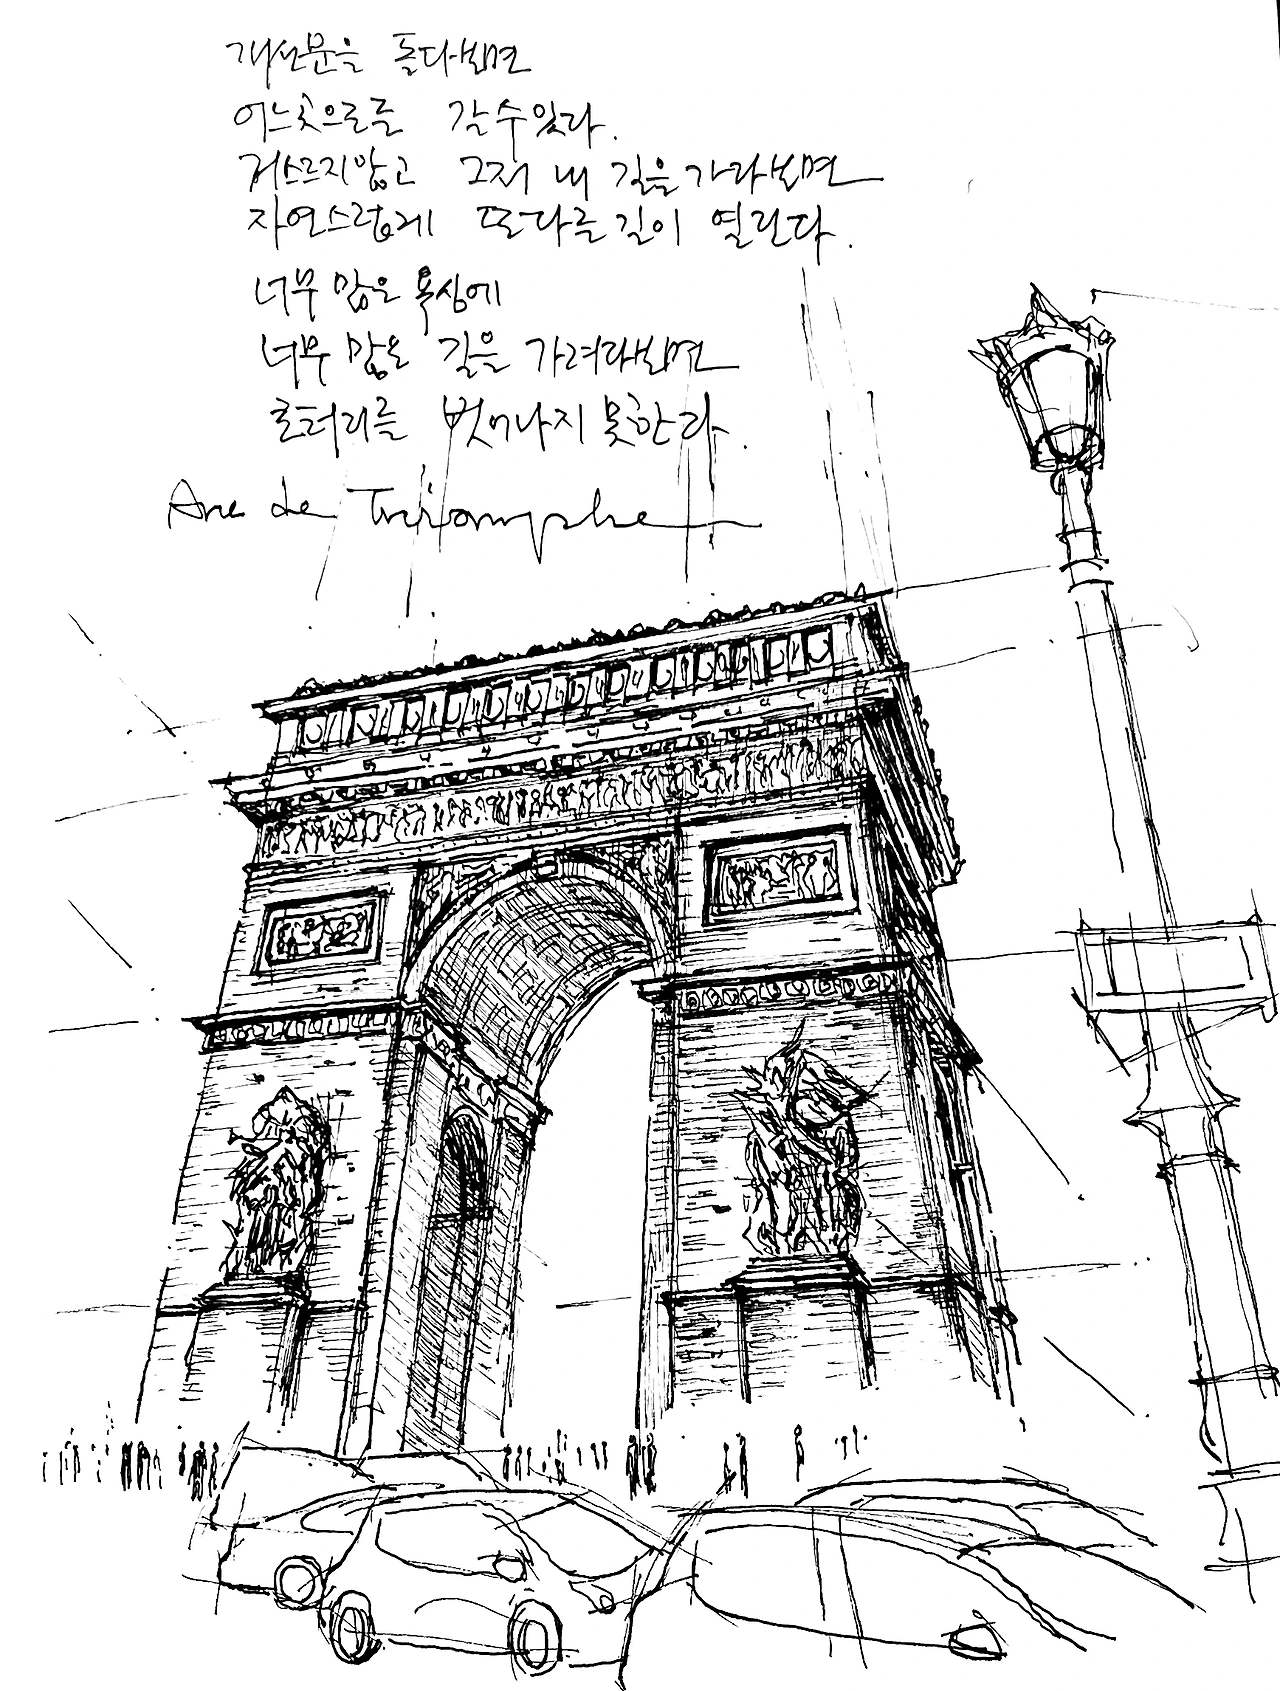 개선문을 돌다보면
어느곳으로를 갈수있다.
거스르지않고 그저 내 길을 가다보면
자연스럽게 또다른길이 열린다.
너무 많은 욕심에
너무 많은 길을 가려다보면
로터리를 벗어나지 못한다.
Arc de Triomphe